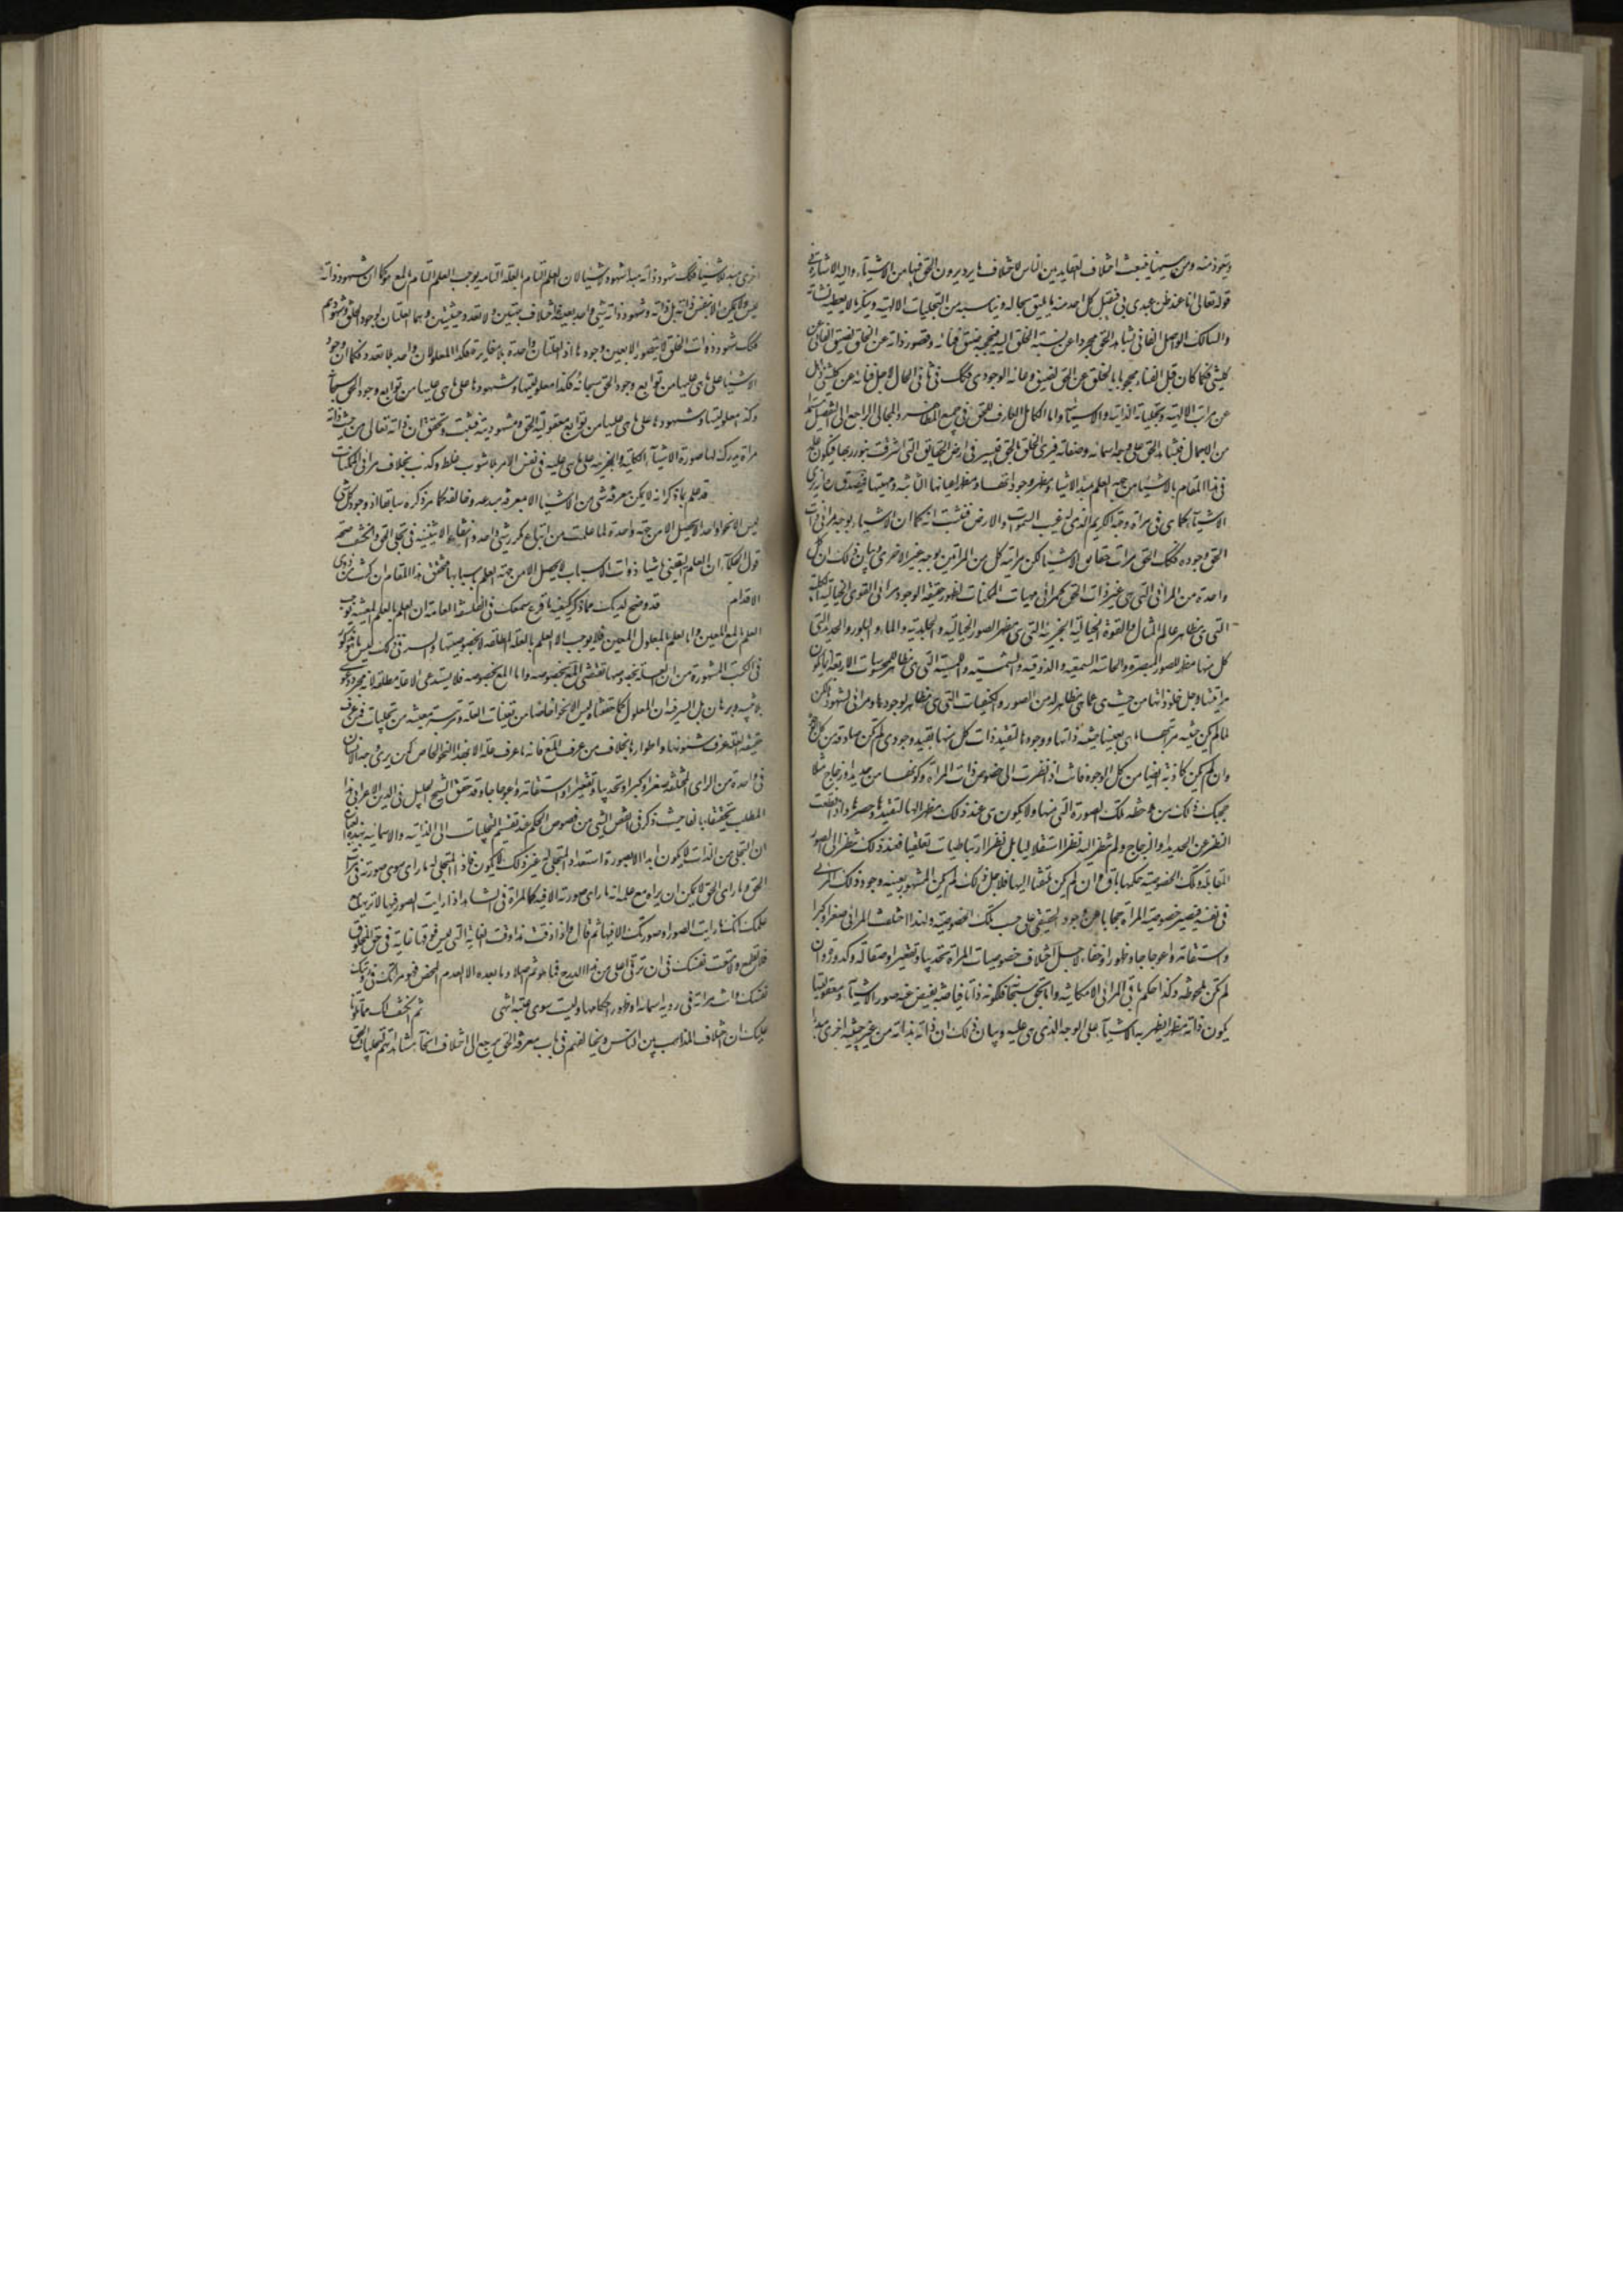 ويتعوذ منه ومن سيهنا ينبعث اختلاف العقايد بين الناس لاختلاف ما يرد يرون الحق فيها من الاشياء واليه الاشارة في
قوله تعالى انا عند ظن عبدى بى فيقبل كل احد منه ما يليق بحاله ويناسبه من التجليات الالهية وينكر ما لا يعطيه نشاته
والسالك الواصل الفانى يشاهد الحق مجردا عن نسبة الخلق اليه فيحجبه ضيق فنائه وقصور ذاته عن الخلق لضيق الفانى عن
كل شى فكما كان قبل الفناء محجوبا بالخلق عن الحق لضيق وعائه الوجودى فكك فى ثانى الحال لاجل فنائه عن كل شى ذاهل
عن مراتب الالهية وتجلياته الذاتية والاسمائية واما الكامل العارف للحق فى جميع المظاهر والمجالى الراجع الى التفصيل مستمدا
من الاجمال فيشاهد الحق على وجه اسمائه وصفاته فيرى الخلق بالحق فيسير فى ارض الحقايق التى اشرقت بنور ربها فيكون علمه
فى هذا المقام بالاشياء من جهة العلم بمبدء الاشياء ومظهر وجوداتها ومظهر اعيانها الثابتة ومهيتها فيصدق انه يرى
الاشياء كما هى فى مراة وجهه الكريم الذى له غيب السموات والارض فثبت انه كما ان الاشياء بوجه مرائى ذات
الحق ووجوده فكك الحق مرات حقايق الاشياء لكن مراتية كل من المراتين بوجه غير الاخرى وبيان ذلك ان كل
واحدة من المرائى التى هى غير ذات الحق كمرائى مهيات الممكنات لظهور حقيقة الوجود ومرائى القوى الخيالية الكلية
التى هى مظاهر عالم المثال والقوة الخيالية الجزئية التى هى مظهر الصور الخيالية والجليدية والماء والبلور والحديد التى
كل منها مظهر للصور المبصرة والحاسة السمعية والذوقية والشمية واللمسية التى هى مظاهر المحسوسات الاربعة انما يكون
مراتيتها وجل ذواتها من حيث هى عما هى مظاهر له من الصور والكيفيات التى هى مظاهر لوجودها ومرائى لشهودها لكن
لما لم يكن حيثية مراتيتها هى بعينها حيثية ذاتها ووجودها لتقيد ذات كل منها بقيد وجودى لم تكن صادقة من كل وجه
وان لم تكن كاذبة ايضا من كل الوجوه فانت اذا نظرت الى خصوص ذات المراة وكونها من حديد او زجاج مثلا
حجبك ذلك من ملاحظة تلك الصورة التى فيها ولا يكون هى عند ذلك مظهرا لها لتقيدها وحصرها واذا قطعت
النظر عن الحديد او الزجاج ولم تنظر اليه نظرا استقلاليا بل نظرا ارتباطيا تعلقيا فعند ذلك تنظر الى الصور
المقابلة وتلك الخصوصية حكمها باق وان لم تكن ملتفتا اليها فلاجل ذلك لم يكن المشهور بعينه وجود ذلك المرئى
فى نفسه فيصير خصوصية المراة حجابا عن وجود الحقيقى على حسب تلك الخصوصية ولهذا اختلفت المرائى صغرا وكبرا
واستقامة واعوجاجا وظهورا وخفاء لاجل اختلاف خصوصيات المراة تحديبا وتقعيرا وصقالة وكدورة وان
لم تكن ملحوظة وكذا حكم باقى المرائى الامكانية واما الحق سبحانه فلكونه ذاتا فياضة يفيض عنه صور الاشياء ومعقوليتها
يكون ذاته مظهرا يظهر به الاشياء على الوجه الذى هى عليه وبيان ذلك ان ذاته بذاته من غير حيثية اخرى مبدا
اخرى مبدء للاشياء فكك شهود ذاته مبدا شهود الاشياء لان العلم التام بالعلة التامة يوجب العلم التام بالمع فكما ان شهود ذاته
ليس ولا يمكن الا بنفس ذاته بل ذاته وشهود ذاته شى واحد بعينه بلا اختلاف جهتين ولا تعدد حيثيتين وهما العلتان لوجود الخلق وشهودهم
فكك شهود ذوات الخلق لا يتصور الا بعين وجودها اذ العلتان واحدة بلا مغايرة فكذا المعلولان واحد بلا تعدد فكما ان وجود
الاشياء على ما هى عليها من توابع وجود الحق سبحانه فكذا معلوليتها وشهودها على ما هى عليها من توابع وجود الحق سبحانه
وكذا معلوليتها وشهودها على ما هى عليها من توابع معقولية الحق ومشهوديته فثبت وتحقق ان ذاته تعالى من حيث ذاته
مراة يدرك بها صورة الاشياء الكلية والجزئية على ما هى عليه فى نفس الامر بلا شوب غلط وكذب بخلاف مرائى الممكنات
قد علم بما ذكر انه لا يمكن معرفة شى من الاشياء الا بمعرفة مبدعه وخالقه كما مر ذكره سابقا اذ وجود كل شى
ليس الا نحوا واحدا لا يحصل الا من جهة واحدة لما علمت من امتناع تكرر شى واحد وانتفاء الاثنينية فى تجلى الحق وانكشف صحة
قول الحكماء ان العلم اليقينى باشياء ذوات الاسباب لا يحصل الا من جهة العلم باسبابها فتحقق هذا المقام ان كنت من ذوى
الاقدام قد وضح لديك مما ذكر كيفية ما قرع سمعك فى الفلسفة العامة ان العلم بالعلة المعينة يوجب
العلم بالمع المعين واما العلم بالمعلول المعين فلا يوجب الا العلم بالعلة المطلقة لا بخصوصيتها والسر فى ذلك ليس ما هو مذكور
فى الكتب المشهورة من ان العلة بخصوصها تقتضى المع بخصوصه واما المع بخصوصه فلا يستدعى الا علة مطلقة لانه مجرد دعوى
بلا بينة وبرهان بل السر فيه ان المعلول كما حققناه ليس الا نحوا خاصا من تعينات العلة ومرتبة معينة من تجلياتها فمن عرف
حقيقة العلة عرف شئونها واطوارها بخلاف من عرف المع فانه ما عرف علته الا بهذا النحو الخاص كمن يرى وجه الانسان
فى واحدة من المرائى المختلفة صغرا وكبرا وتحديبا وتقعيرا واستقامة واعوجاجا وقد حقق الشيخ الجليل محى الدين الاعرابى هذا
المطلب تحقيقا بالغا حيث ذكر فى الفص الشيثى من فصوص الحكم عند تقسيم التجليات الى الذاتية والاسمائية بهذه العبارة
ان التجلى من الذات لا يكون ابدا الا بصورة استعداد المتجلى له غير ذلك لا يكون فاذا المتجلى له ما راى سوى صورته فى مراة
الحق وما راى الحق ولا يمكن ان يراه مع علمه انه ما راى صورته الا فيه كالمراة فى الشاهد اذا رايت الصور فيها لا تريها مع
علمك انك ما رايت الصور او صورتك الا فيها ثم قال واذا ذقت هذا ذقت الغاية التى ليس فوقها غاية فى حق المخلوق
فلا تطمع ولا تتعب نفسك فى ان ترقى اعلى من هذا الدرج فما هو ثم اصلا وما بعده الا العدم المحض فهو مراتك فى رؤيتك
نفسك وانت مراته فى رويه اسمائه وظهور احكامها وليست سوى عينه انتهى ثم انكشف لك مما تلونا
عليك ان اختلاف المذاهب بين الناس وتخالفهم فى باب معرفة الحق يرجع الى اختلاف انحاء مشاهدتهم لتجليات الحق